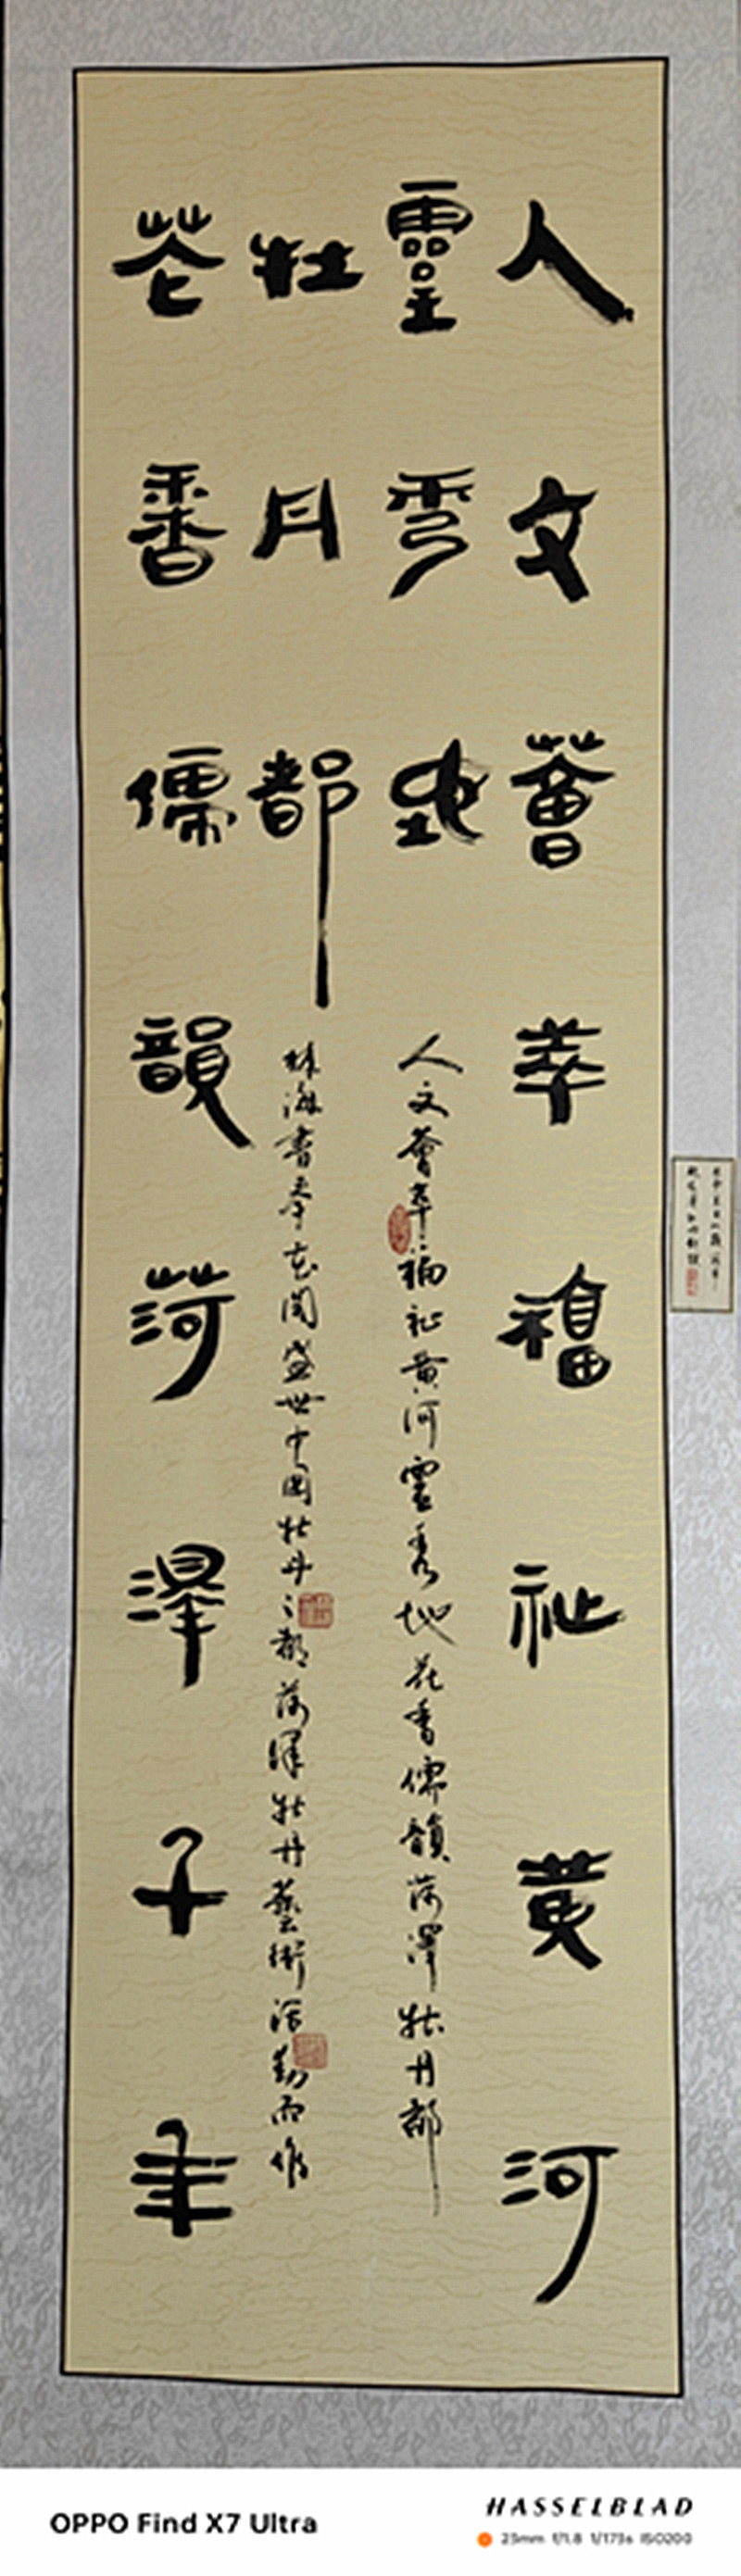 人文薈萃福祉黃河
靈秀地
花香儒韻菏澤千年
牡丹都
人文薈萃福祉黃河靈秀地花香儒韻菏澤牡丹都
林海書奉花開盛世中國牡丹之都菏澤牡丹藝術活動而作
OPPO Find X7 Ultra
HASSELBLAD
23mm f/1.8 1/173s ISO200